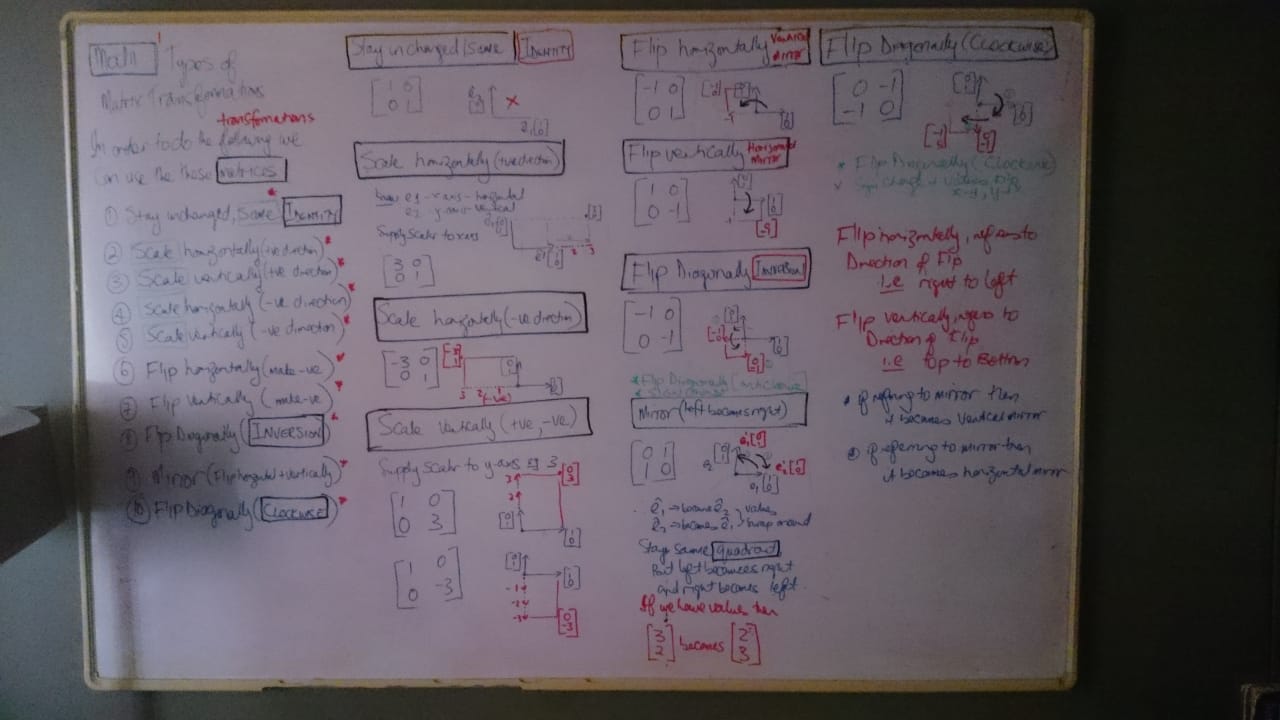 Math
Types of
Matrix Transformations
transformations
In order to do the following we
Can use the those matrices
① Stay unchanged, Same IDENTITY
② Scale horizontally (+ve direction)
③ Scale vertically (+ve direction)
④ Scale horizontally (-ve direction)
⑤ Scale vertically (-ve direction)
⑥ Flip horizontally (make -ve)
⑦ Flip vertically (make -ve)
⑧ Flip Diagonally (INVERSION)
⑨ Mirror (Flip horizontal + vertically)
⑩ Flip Diagonally (Clockwise)
Stay unchanged/same IDENTITY
1 0
0 1
Scale horizontally (+ve direction)
e1 - x axis - horizontal
e2 - y-axis vertical
Supply scalar to x axis
3 0
0 1
Scale horizontally (-ve direction)
-3 0
0 1
3 2 1
(-ve)
Scale vertically (+ve, -ve)
Supply scalar to y-axis eg 3
1 0
0 3
1 0
0 -3
Flip horizontally Vertical Mirror
-1 0
0 1
Flip vertically Horizontal Mirror
1 0
0 -1
Flip Diagonally Inversion
-1 0
0 -1
* Flip Diagonally (anticlockwise
Mirror (left becomes right)
0 1
1 0
e1 → became e2 } values
e2 → becomes e1 } swap around
Stays same quadrant,
But left becomes right
and right becomes left.
If we have values then
3 2
2 becomes 3
Flip Diagonally (Clockwise)
0 -1
-1 0
* Flip Diagonally (Clockwise)
Flip horizontally, refers to
Direction of Flip
i.e right to left
Flip vertically, refers to
Direction of Flip
i.e Top to Bottom
if refering to mirror then
it becomes vertical mirror
if referring to mirror then
it becomes horizontal mirror